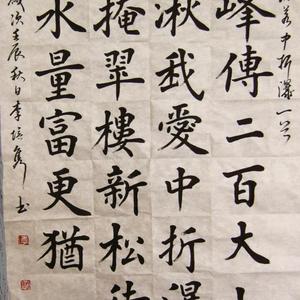 若中折瀑一首
峰傳二百大
湫我愛中折瀑
掩翠樓新松待
水量富更猶
歲次壬辰秋日李培雋书